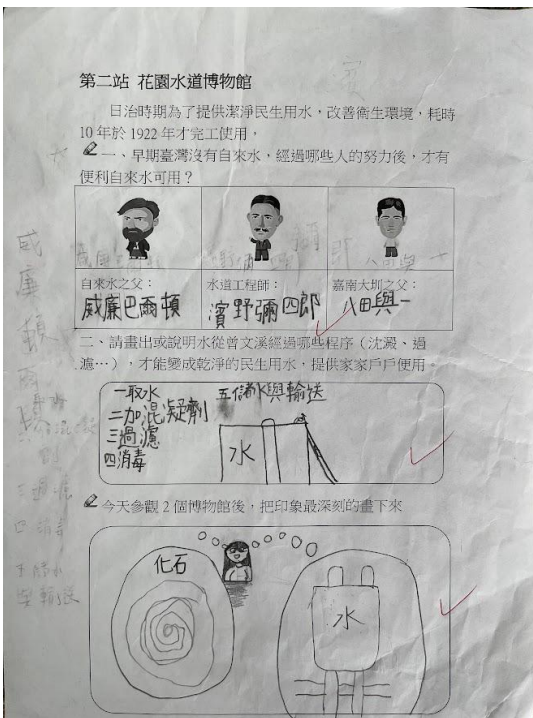 第二站 花園水道博物館
日治時期為了提供潔淨民生用水，改善衛生環境，耗時
10年於1922年才完工使用，
一、早期臺灣沒有自來水，經過哪些人的努力後，才有
便利自來水可用？
自來水之父：
威廉巴爾頓
水道工程師：
濱野彌四郎
嘉南大圳之父：
八田與一
二、請畫出或說明水從曾文溪經過哪些程序（沈澱、過
濾…），才能變成乾淨的民生用水，提供家家戶戶使用。
一取水
二加混凝劑
三過濾
四消毒
五儲水與輸送
水
今天參觀2個博物館後，把印象最深刻的畫下來
化石
水